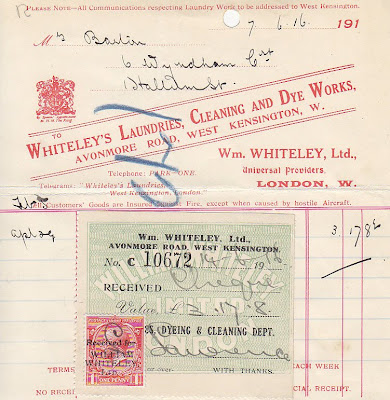 PLEASE NOTE—All Communications respecting Laundry Work to be addressed to West Kensington.
7.6.16 191
Ms
6 Wyndham
TO
WHITELEY'S LAUNDRIES, CLEANING AND DYE WORKS,
AVONMORE ROAD, WEST KENSINGTON, W.
Telephone: PARK-ONE.
Telegrams: "Whiteley's Laundries,
West Kensington, London."
WM. WHITELEY, Ltd.,
Universal Providers,
LONDON, W.
All Customers' Goods are Insured Fire, except when caused by hostile Aircraft.
3. 17 8
WM. WHITELEY, LTD.,
AVONMORE ROAD, WEST KENSINGTON.
No. C 10672 19
RECEIVED Cheque
Value £3.17.8
(DYEING & CLEANING DEPT.
Lawrence
Received for
WILLIAM
WHITELEY,
ONE PENNY
over- WITH THANKS.
TERMS
EACH WEEK
NO RECEI
ICIAL RECEIPT.